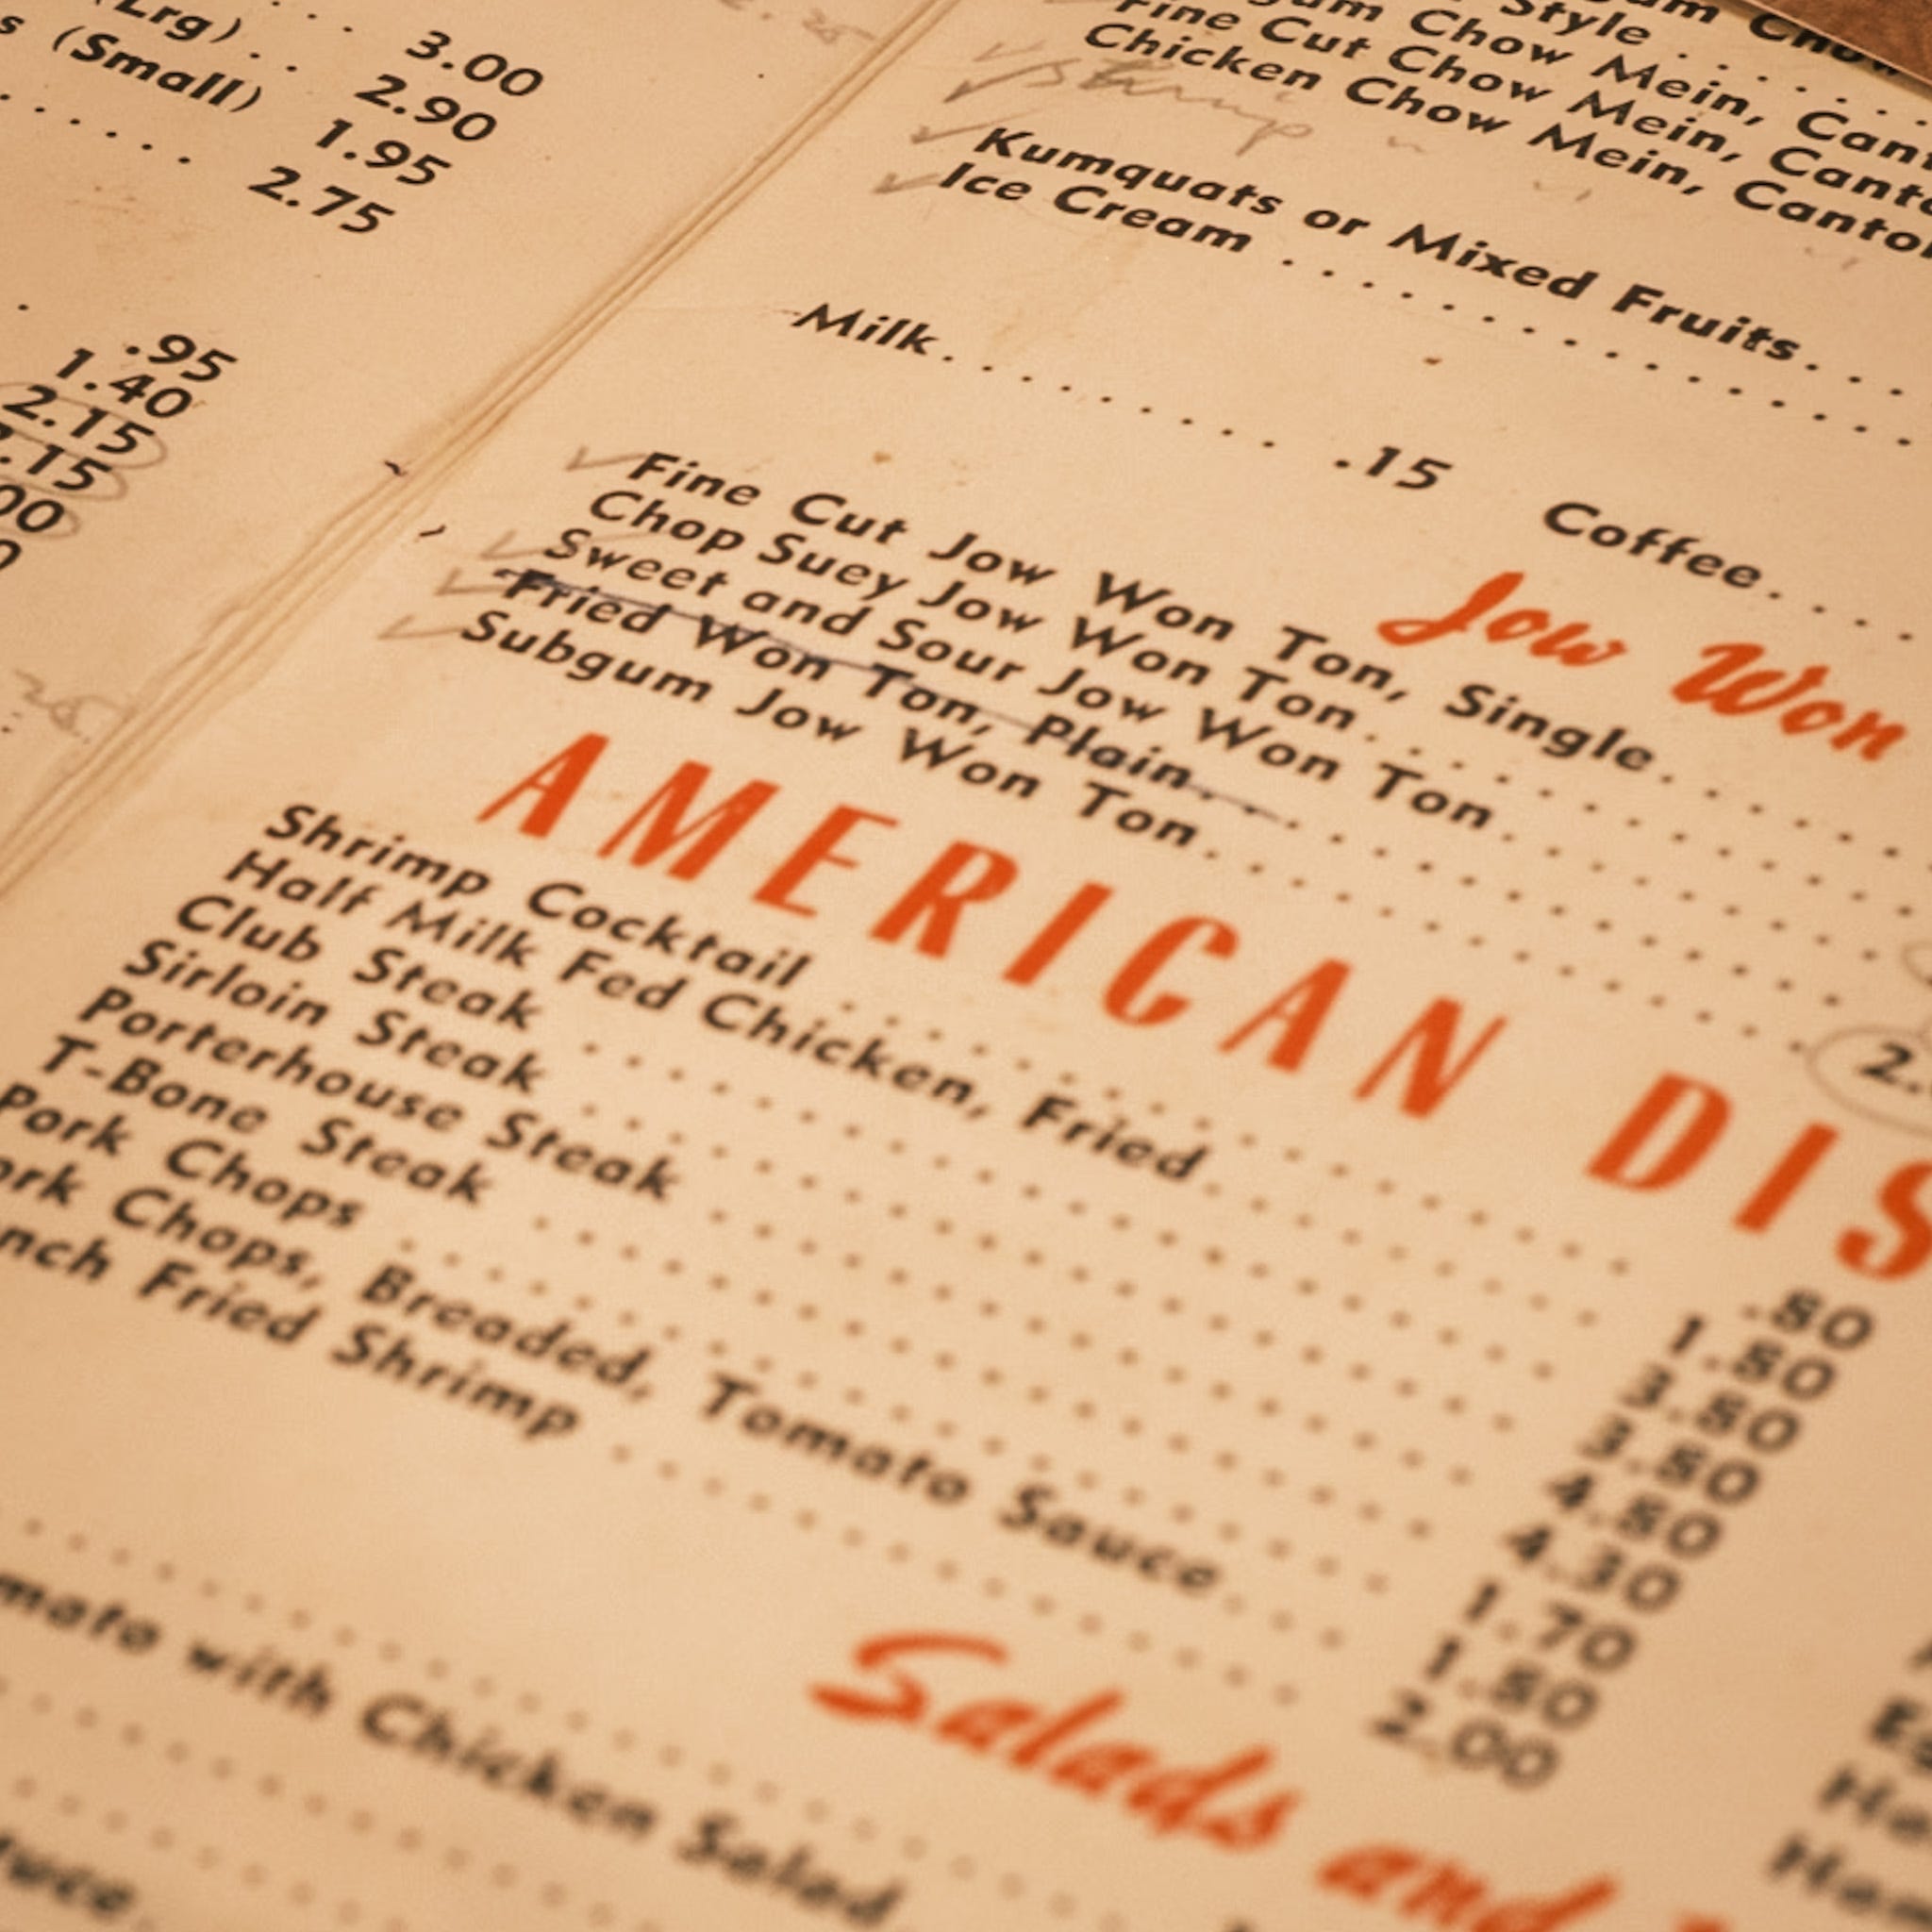 3.00
(Lrg) . . 2.90
(Small) 1.95
. . . . . . 2.75
.95
1.40
2.15
.15
00
0
Style . . . . . .
Chow Mein,
Fine Cut Chow Mein,
Chicken Chow Mein,
Kumquats or Mixed Fruits . . .
Ice Cream . . . . . . . . . . . .
Milk . . . . . . . . . . .15 Coffee . . . .
Jow Won
Fine Cut Jow Won Ton, Single . . . . . .
Chop Suey Jow Won Ton . . . . . . . .
Sweet and Sour Jow Won Ton . . . . . . . .
Fried Won Ton, Plain . . . . . . . . . .
Subgum Jow Won Ton . . . . . . . . . . 2.
AMERICAN DIS
Shrimp Cocktail . . . . . . . . . . .80
Half Milk Fed Chicken, Fried . . . . . . . . 1.80
Club Steak . . . . . . . . . . . . 3.80
Sirloin Steak . . . . . . . . . . . . 3.80
Porterhouse Steak . . . . . . . . . . 4.80
T-Bone Steak . . . . . . . . . . . . 4.30
Pork Chops . . . . . . . . . . . . 1.70
ork Chops, Breaded, Tomato Sauce . . . . 1.80
nch Fried Shrimp . . . . . . . . . . 2.00
Salads and
mato with Chicken Salad